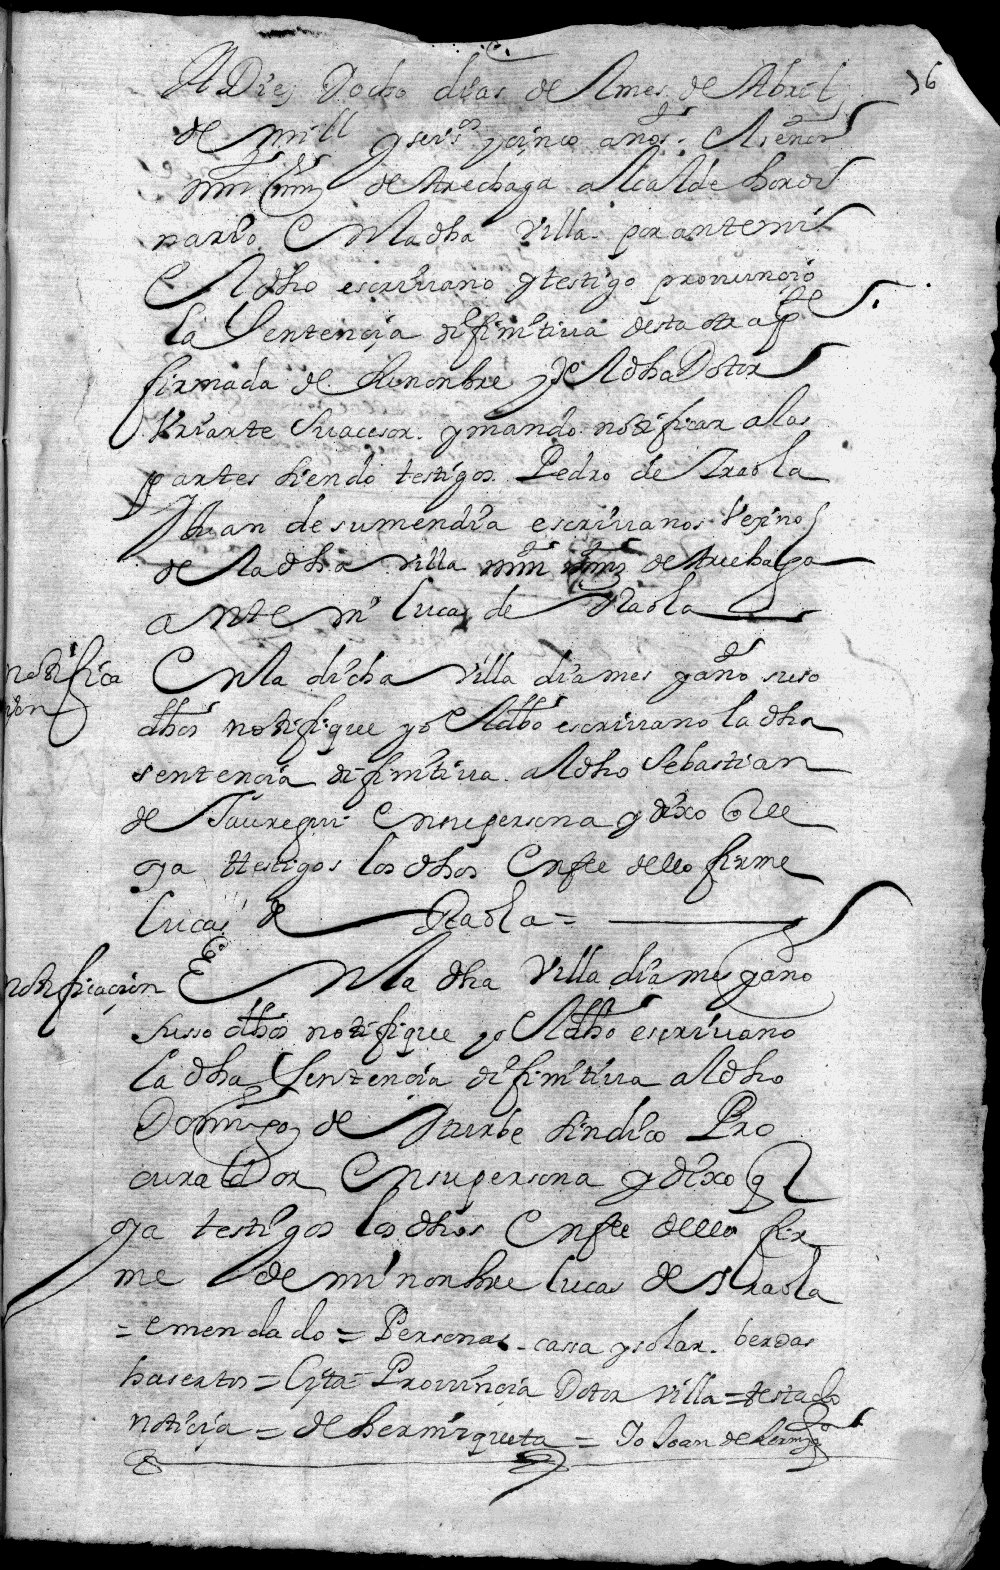 36
A Diez Yocho dias de lmes de Abril
de mill y seisos y cinco anos. el señor
mrn mrnz de Arechaga alcalde hordi
nario en la dha villa por ante mi
el dho escriuano y testigo pronuncio
la sentencia difinitiua desta otra pte
firmada de su nonbre y del dho Dotor
Vriarte su acesor. y mando notificar a las
partes siendo testigos Pedro de Yraola
Y Juan de sumendia escriuanos vezinos
de la dha villa mrn mrnz de Arechaga
ante mi lucas de Yraola
notifica
cion
En la dicha villa dia mes y año suso
dhos notifique yo el dho escriuano la dha
sentencia difinitiua al dho Sebastian
de Jauregui en su persona y dixo que
oya testigos los dhos en fee dello firme
lucas de Yraola =
notificacion
En la dha villa dia mes y año
susso dhos notifique yo el dho escriuano
la dha sentencia difinitiua al dho
Domingo de Yturbe sindico Pro
curador en su persona y dixo q
oya testigos los dhos en fee dello fir
me de mi nonbre lucas de Yraola
= emendado = Personas - cassa y solar. berdas
ynsertos = Cyta = Prouinçia Dotor villa = testado
notiçia = de hermiqueta = Yo Joan de